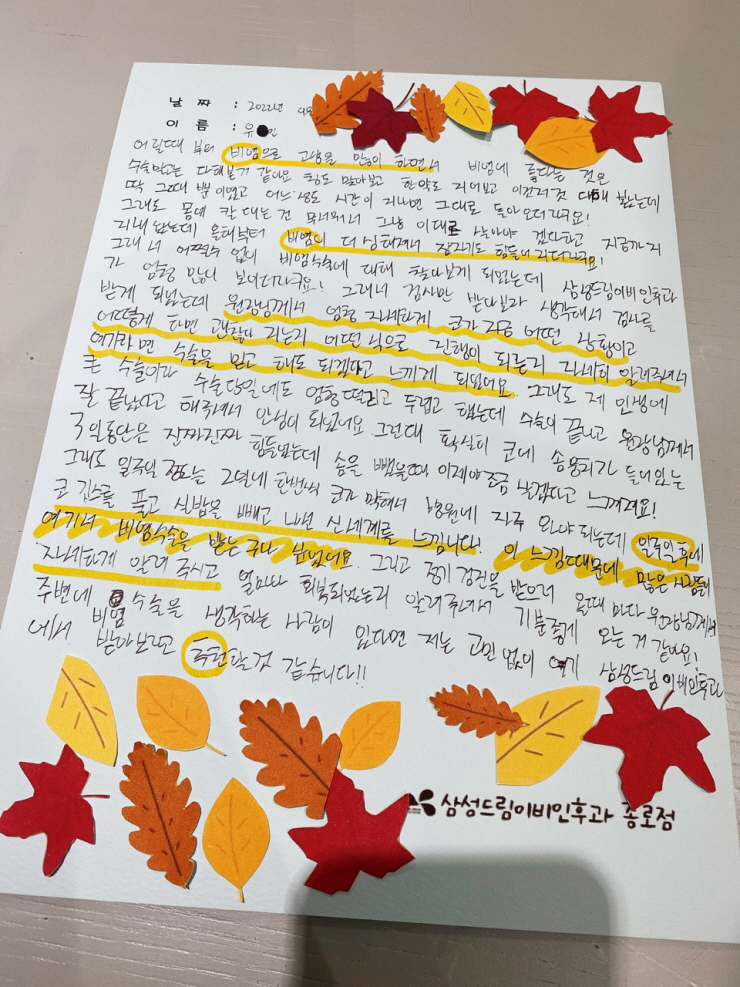 날 짜 : 2022년 9월
이 름 : 유 인
어릴때 부터 비염으로 고생을 많이 하면서 비염에 좋다는 것은
수술말고는 다해본거 같아요 침도 맞아보고 한약도 지어보고 이것저것 다해 봤는데
딱 그때 뿐이였고 어느정도 시간이 지나면 그대로 돌아오더라구요!
그래도 몸에 칼 대는건 무서워서 그냥 이대로 살아야 겠다하고 지금까지
지내 왔는데 올해부터 비염이 더 심해져서 잠자기도 힘들어 지더라구요!
그래서 어쩔수 없이 비염수술에 대해 찾아보게 되었는데 삼성드림이비인후과
가 엄청 많이 보이더라구요! 그래서 검사만 받아보자 생각해서 검사를
받게 되었는데 원장님께서 엄청 자세하게 코가 지금 어떤 상황이고
어떻게 하면 괜찮아 지는지 어떤식으로 진행이 되는지 자세히 알려주셔서
여기라면 수술을 믿고 해도 되겠다고 느끼게 되었어요. 그래도 제 인생에
큰 수술이라 수술당일에도 엄청떨리고 두렵고 했는데 수술이 끝나고 원장님께서
잘 끝났다고 해주셔서 안심이 되었어요. 그런데 확실히 코에 솜뭉치가 들어있는
3일동안은 진짜진짜 힘들었는데 솜을 뺐을때 이제야 조금 낫겠다고 느껴져요!
그래도 일주일 정도는 2일에 한번씩 코가 막혀서 병원에 자주 와야 되는데 일주일후에
코 깁스를 풀고 실밥을 빼고 나면 신세계를 느낍니다! 이 느낌때문에 많은 사람들이
여기서 비염수술을 받는구나 싶었어요. 그리고 정기 검진을 받으러 올때 마다 원장님께서
자세하게 알려 주시고 얼마나 회복되었는지 알려주셔서 기분좋게 오는 거 같아요!
주변에 비염 수술을 생각하는 사람이 있다면 저는 고민 없이 여기 삼성드림이비인후과
에서 받아보라고 추천할것 같습니다!!
삼성드림이비인후과 종로점